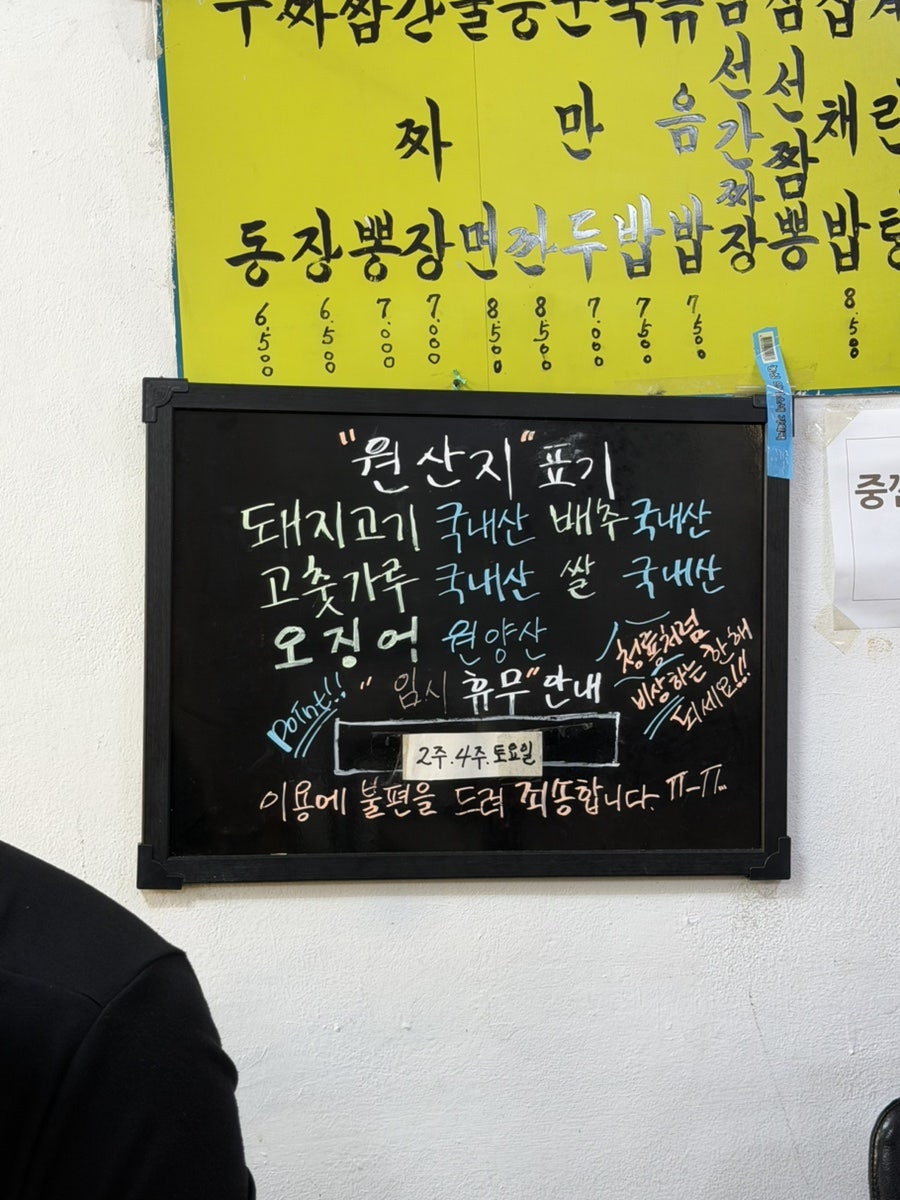 짜 만 음 선간짜 선짬 채
동 장 뽕 장 면 깐 두 밥 밥 장 뽕 밥
6.500 6.500 7.000 7.000 8.500 8.500 7.000 7.500 7.500 8.500
"원산지" 표기
돼지고기 국내산 배추 국내산
고춧가루 국내산 쌀 국내산
오징어 원양산
청룡처럼
비상하는 한해
되세요!!!
point!! "임시 휴무" 안내
2주.4주.토요일
이용에 불편을 드려 죄송합니다. ㅠ-ㅠ...